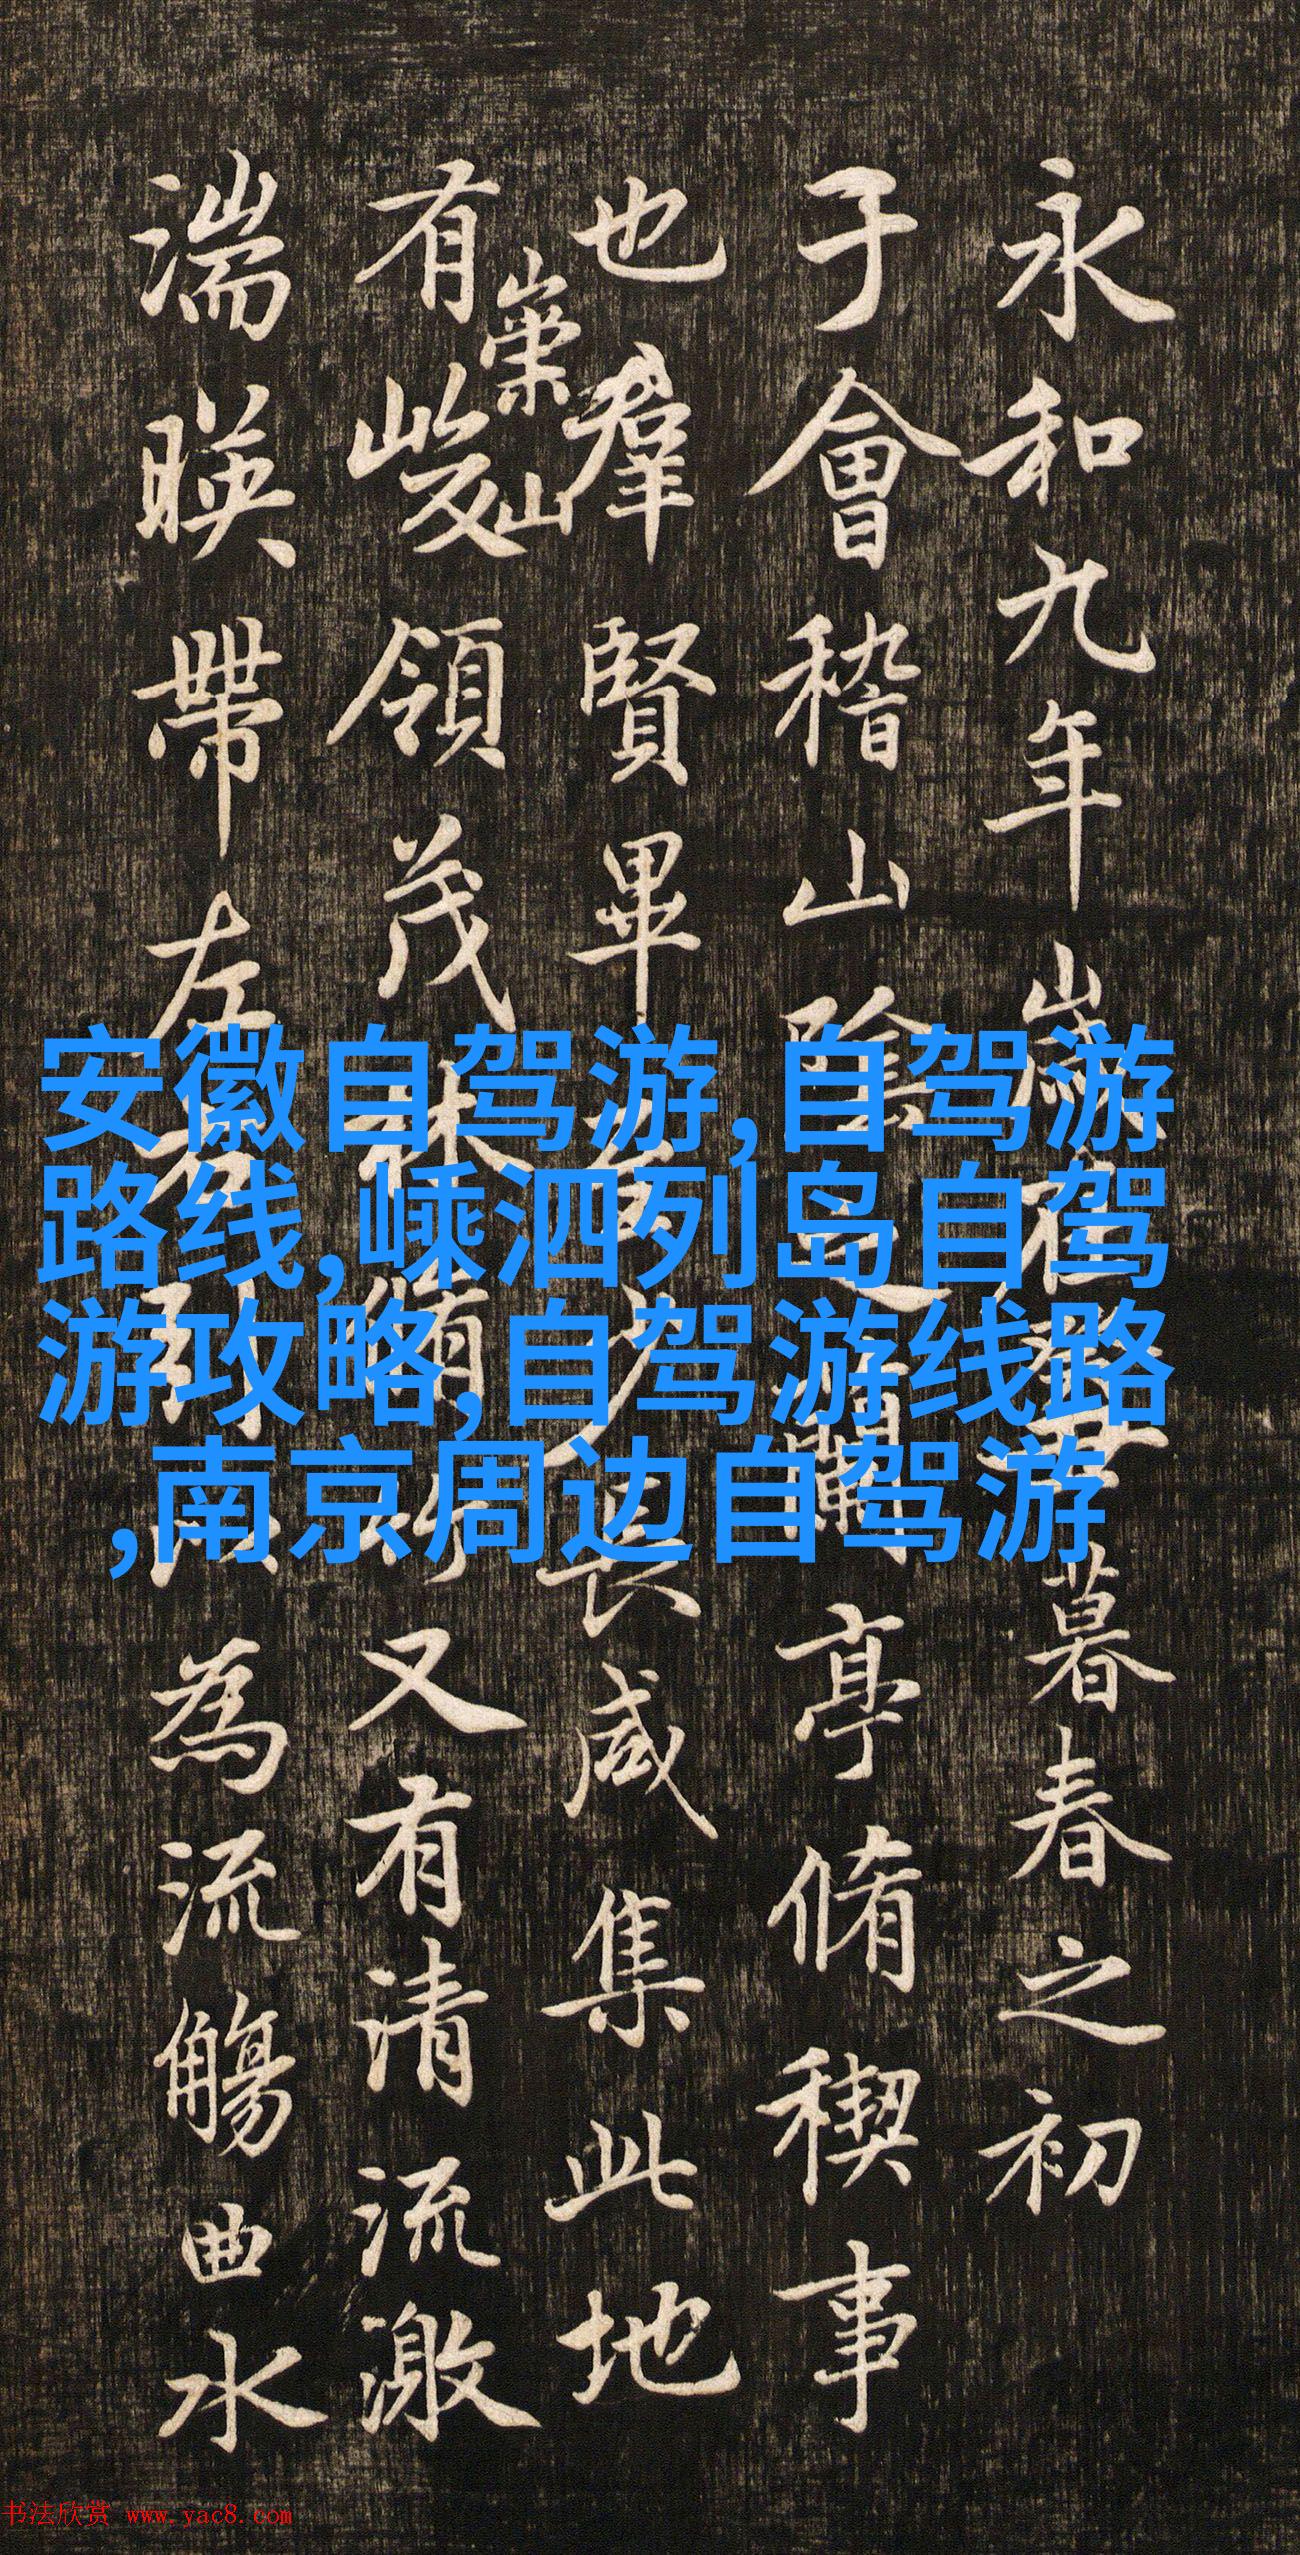 永和九年歲在暮春之初
于會稽山陰之蘭亭脩稧事
也羣賢畢至少長咸集此地
有崇山峻領茂林脩竹又有清流激
湍暎帶左右引以為流觴曲水
安徽自驾游,自驾游
路线,嵊泗列岛自驾
游攻略,自驾游线路
,南京周边自驾游
书法欣赏 www.yac8.com